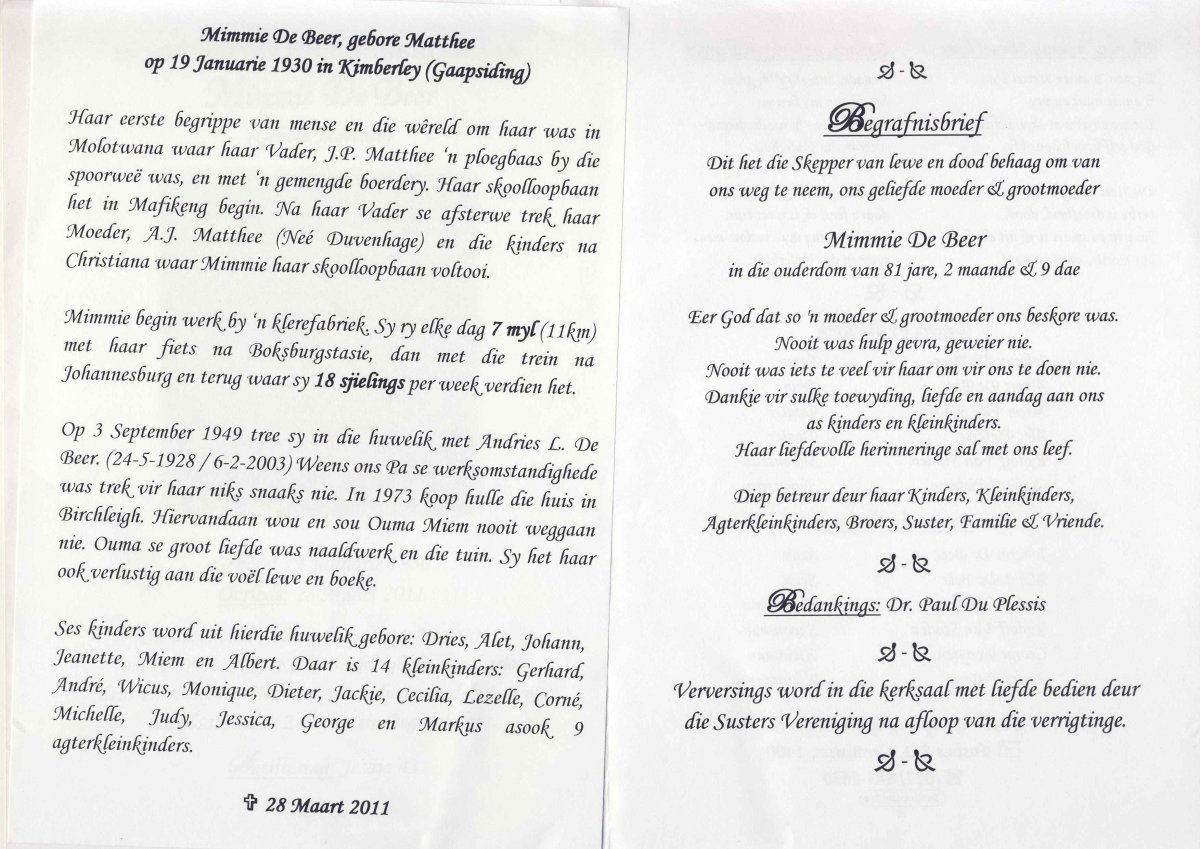 Mimmie De Beer, gebore Matthee
op 19 Januarie 1930 in Kimberley (Gaapsiding)
Haar eerste begrippe van mense en die wêreld om haar was in
Molotwana waar haar Vader, J.P. Matthee ‘n ploegbaas by die
spoorweë was, en met ‘n gemengde boerdery. Haar skoolloopbaan
het in Mafikeng begin. Na haar Vader se afsterwe trek haar
Moeder, A.J. Matthee (Neé Duvenhage) en die kinders na
Christiana waar Mimmie haar skoolloopbaan voltooi.
Mimmie begin werk by ‘n klerefabriek. Sy ry elke dag 7 myl (11km)
met haar fiets na Boksburgstasie, dan met die trein na
Johannesburg en terug waar sy 18 sjielings per week verdien het.
Op 3 September 1949 tree sy in die huwelik met Andries L. De
Beer. (24-5-1928 / 6-2-2003) Weens ons Pa se werksomstandighede
was trek vir haar niks snaaks nie. In 1973 koop hulle die huis in
Birchleigh. Hiervandaan wou en sou Ouma Miem nooit weggaan
nie. Ouma se groot liefde was naaldwerk en die tuin. Sy het haar
ook verlustig aan die voël lewe en boeke.
Ses kinders word uit hierdie huwelik gebore: Dries, Alet, Johann,
Jeanette, Miem en Albert. Daar is 14 kleinkinders: Gerhard,
André, Wicus, Monique, Dieter, Jackie, Cecilia, Lezelle, Corné,
Michelle, Judy, Jessica, George en Markus asook 9
agterkleinkinders.
✞ 28 Maart 2011
Begrafnisbrief
Dit het die Skepper van lewe en dood behaag om van
ons weg te neem, ons geliefde moeder & grootmoeder
Mimmie De Beer
in die ouderdom van 81 jare, 2 maande & 9 dae
Eer God dat so 'n moeder & grootmoeder ons beskore was.
Nooit was hulp gevra, geweier nie.
Nooit was iets te veel vir haar om vir ons te doen nie.
Dankie vir sulke toewyding, liefde en aandag aan ons
as kinders en kleinkinders.
Haar liefdevolle herinneringe sal met ons leef.
Diep betreur deur haar Kinders, Kleinkinders,
Agterkleinkinders, Broers, Suster, Familie & Vriende.
Bedankings: Dr. Paul Du Plessis
Verversings word in die kerksaal met liefde bedien deur
die Susters Vereniging na afloop van die verrigtinge.